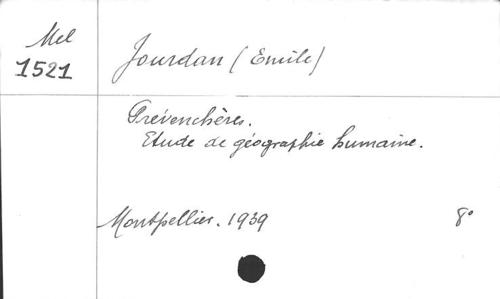 Mel
1521
Jourdan (Emile)
Prévenchères.
Etude de géographie humaine.
Montpellier. 1939 8°